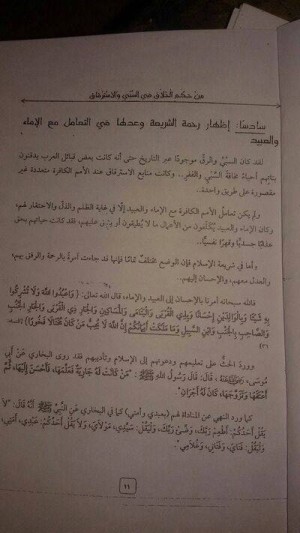 من حكم الخلاق في السبي والاسترقاق
سادسًا: إظهار رحمة الشريعة وعدلها في التعامل مع الإماء
والعبيد
لقد كان السبيُ والرقُ موجودًا عبر التاريخ حتى أنه كانت بعض قبائل العرب يدفنون
بناتهم أحياءً مخافة السبي والفقر.. وكانت منابع الاسترقاق عند الأمم الكافرة متعددة غير
مقصورة على طريق واحدة..
ولم يكن تعامل الأمم الكافرة مع الإماء والعبيد إلا في غاية الظلم والذل والاحتقار لهم،
وكان الإماء والعبيد يُكلّفون من الأعمال ما لا يطيقون أو عليهم، فقد كانت حياتهم بحق
عذابًا جسديًا وقهرًا نفسيًا..
وأما في شريعة الإسلام فإن الوضع اختلف تمامًا فإنها قد جاءت آمرة بالرحمة والرفق بهم،
والعدل معهم، والإحسان إليهم.
فالله سبحانه أمرنا بالإحسان إلى العبيد والإماء، قال الله تعالى: {وَاعْبُدُوا اللَّهَ وَلَا تُشْرِكُوا
بِهِ شَيْئًا وَبِالْوَالِدَيْنِ إِحْسَانًا وَبِذِي الْقُرْبَى وَالْيَتَامَى وَالْمَسَاكِينِ وَالْجَارِ ذِي الْقُرْبَى وَالْجَارِ الْجُنُبِ
وَالصَّاحِبِ بِالْجَنْبِ وَابْنِ السَّبِيلِ وَمَا مَلَكَتْ أَيْمَانُكُمْ إِنَّ اللَّهَ لَا يُحِبُّ مَنْ كَانَ مُخْتَالًا فَخُورًا}
وورد الحثُّ على تعليمهم ودعوتهم إلى الإسلام وتأديبهم فقد روى البخاري عَنْ أَبِي
مُوسَى، رضي الله عنه، قَالَ: قَالَ رَسُولُ اللهِ ﷺ: "مَنْ كَانَتْ لَهُ جَارِيَةٌ فَعَلَّمَهَا، فَأَحْسَنَ إِلَيْهَا، ثُمَّ
أَعْتَقَهَا وَتَزَوَّجَهَا، كَانَ لَهُ أَجْرَانِ".
كما ورد النهي عن المناداة لهم (بعبدي وأمتي) كما في البخاري عَنِ النَّبِيِّ ﷺ أنه قال: "لَا
يَقُلْ أَحَدُكُمْ: أَطْعِمْ رَبَّكَ، وَضِّئْ رَبَّكَ، وَلْيَقُلْ: سَيِّدِي، مَوْلَايَ، وَلَا يَقُلْ أَحَدُكُمْ: عَبْدِي، أَمَتِي،
وَلْيَقُلْ: فَتَايَ، وَفَتَاتِي، وَغُلَامِي".